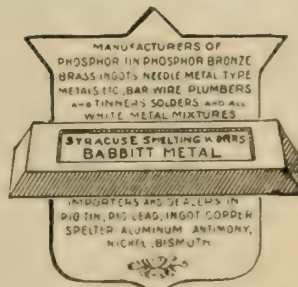 MANUFACTURERS OF
PHOSPHOR TIN PHOSPHOR BRONZE
BRASS INGOTS NEEDLE METAL TYPE
METALS ETC., BAR WIRE PLUMBERS
AND TINNERS SOLDERS AND ALL
WHITE METAL MIXTURES
SYRACUSE SMELTING WORKS
BABBITT METAL
IMPORTERS AND DEALERS IN
PIG TIN, PIG LEAD, INGOT COPPER
SPELTER ALUMINUM ANTIMONY,
NICKEL, BISMUTH